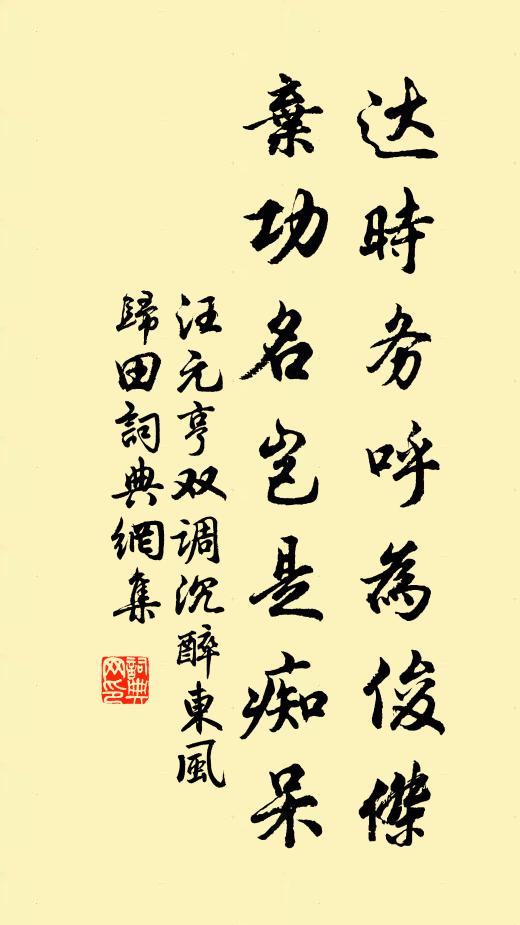 达時务呼為俊傑
棄功名岂是痴呆
汪元亨双调沉醉東風
歸田詞典網集
詞典网印